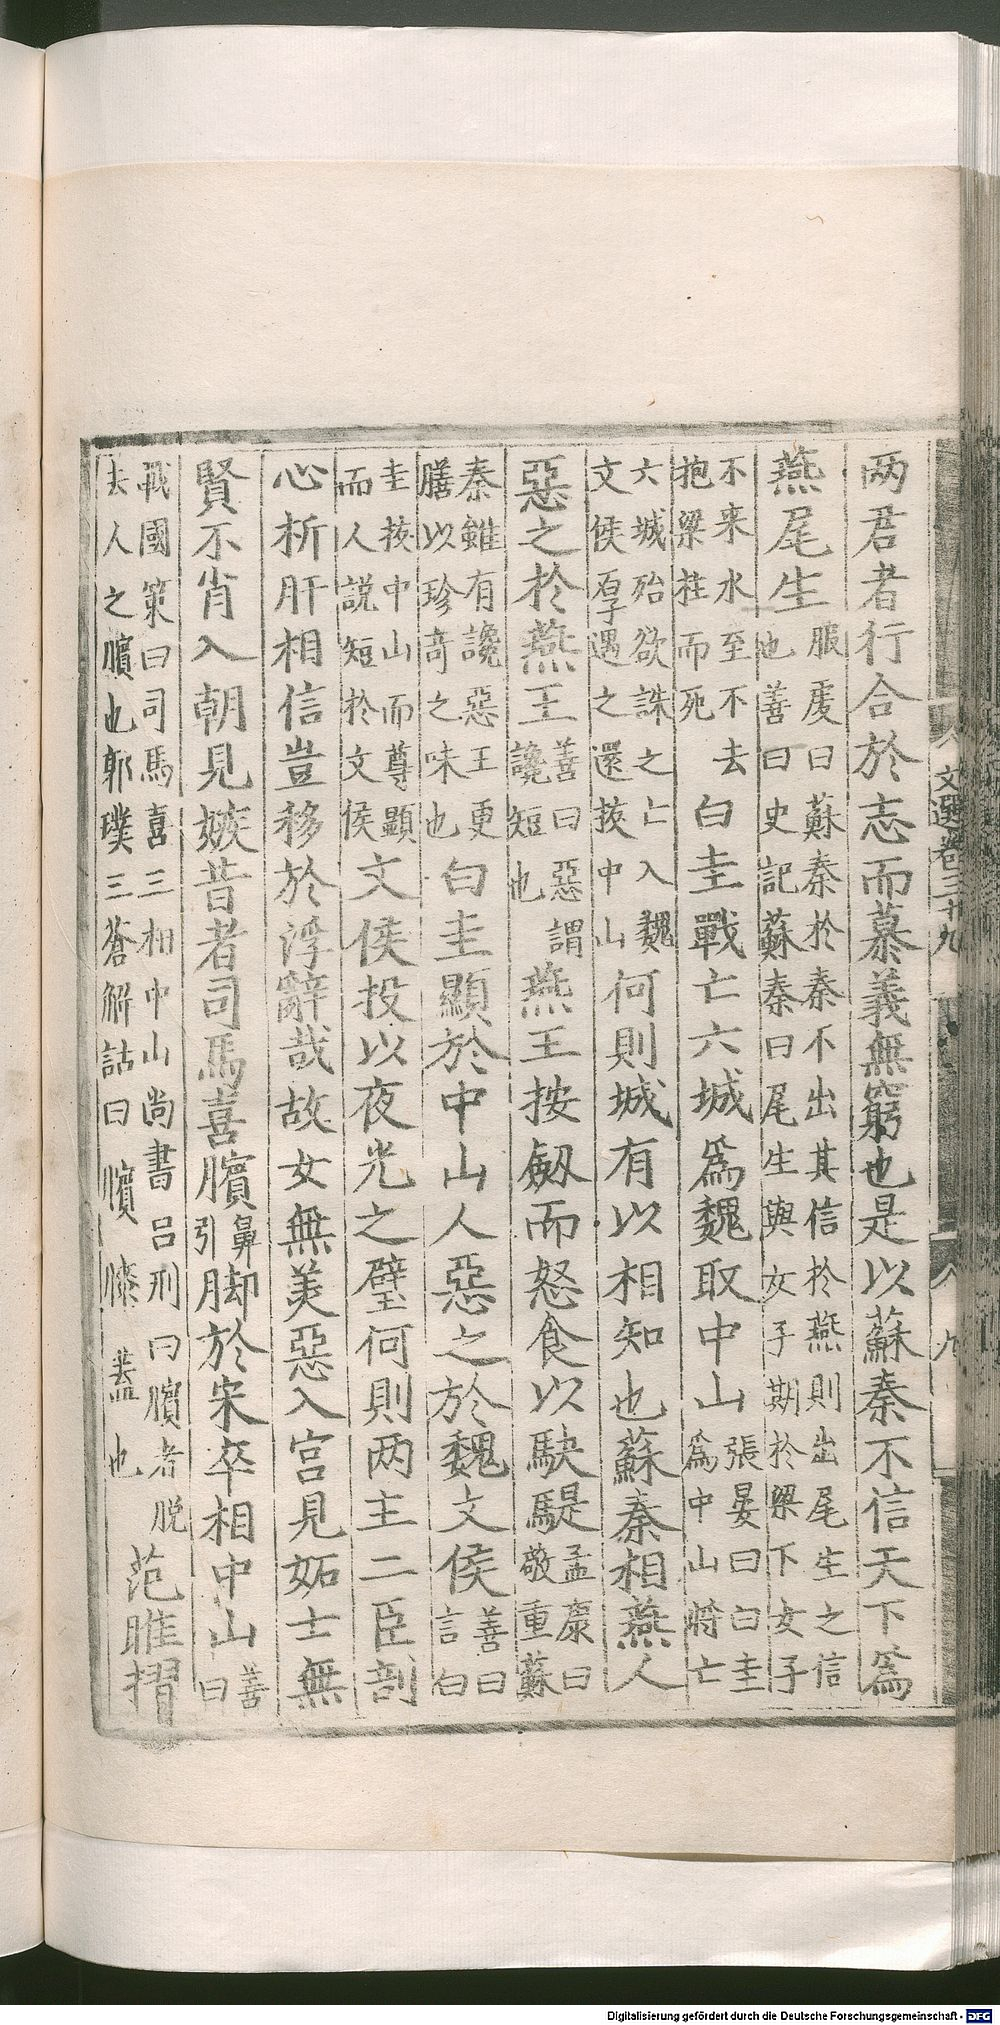 两君者行合於志而慕義無窮也是以蘇秦不信天下爲
燕尾生服虔曰蘇秦於秦不出其信於燕則出尾生之信
也善曰史記蘇秦曰尾生與女子期於梁下女子
不來水至不去
抱梁柱而死
白圭戰亡六城爲魏取中山張晏曰白圭
爲中山將亡
六城殆欲誅之亡入魏
文侯厚遇之還拔中山
何則城有以相知也蘇秦相燕人
惡之於燕王善曰惡謂
讒短也
燕王按劔而怒食以駃騠孟康曰
敬重蘇
秦雖有讒惡王更
膳以珍奇之味也
白圭顯於中山人惡之於魏文侯善曰
言白
圭拔中山而尊顯
而人説短於文侯
文侯投以夜光之璧何則两主二臣剖
心析肝相信豈移於浮辭哉故女無美惡入宮見妬士無
賢不肖入朝見嫉昔者司馬喜臏鼻
引
脚於宋卒相中山善
曰
戰國策曰司馬喜三相中山尚書吕刑曰臏者脱
去人之臏也郭璞三蒼解詁曰臏膝蓋也
范雎摺
文選卷三十九
九
Digitalisierung gefördert durch die Deutsche Forschungsgemeinschaft - DFG